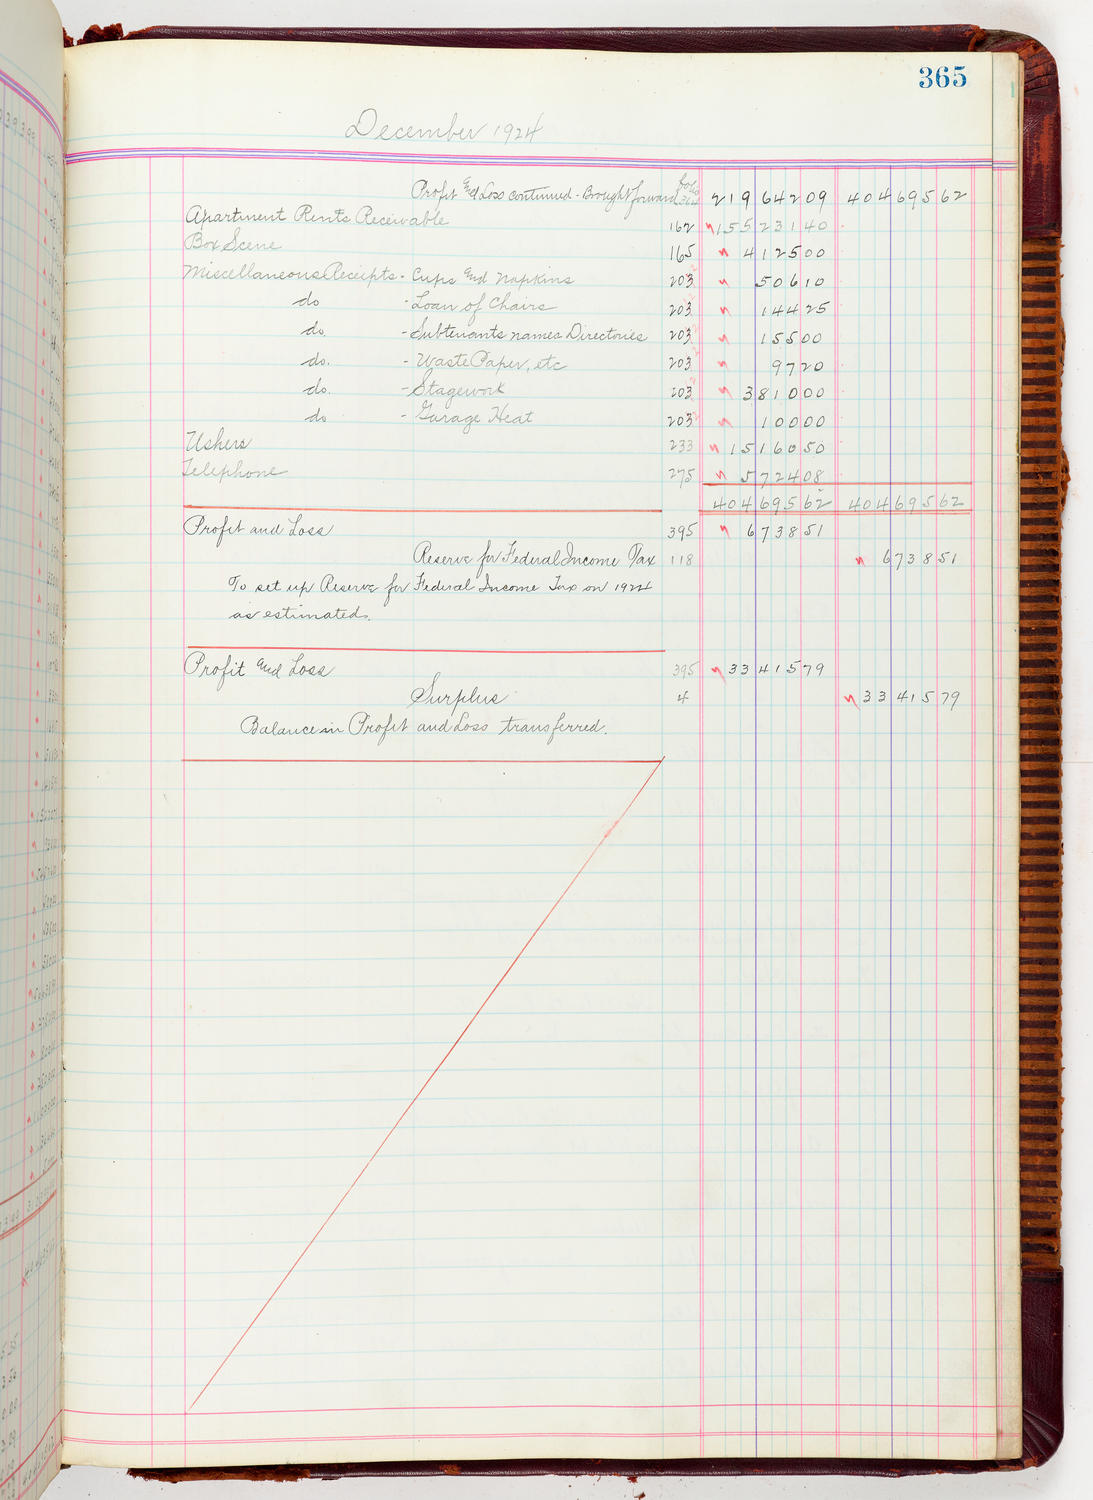 365
December 1924
Profit and Loss continued - Brought forward folio 364 219 642 09 404 695 62
Apartment Rents Receivable 162 155 231 40
Box Scene 165 4 125 00
Miscellaneous Receipts - Cups and Napkins 203 506 10
do - Loan of Chairs 203 144 25
do. - Subtenants names Directories 203 155 00
do. - Waste Paper, etc 203 97 20
do. - Stagework 203 3 810 00
do - Garage Heat 203 100 00
Ushers 233 15 160 50
Telephone 275 5 724 08
404 695 62 404 695 62
Profit and Loss 395 6 738 51
Reserve for Federal Income Tax 118 6 738 51
To set up Reserve for Federal Income Tax on 1924
as estimated.
Profit and Loss 395 33 415 79
Surplus 4 33 415 79
Balance in Profit and Loss transferred.